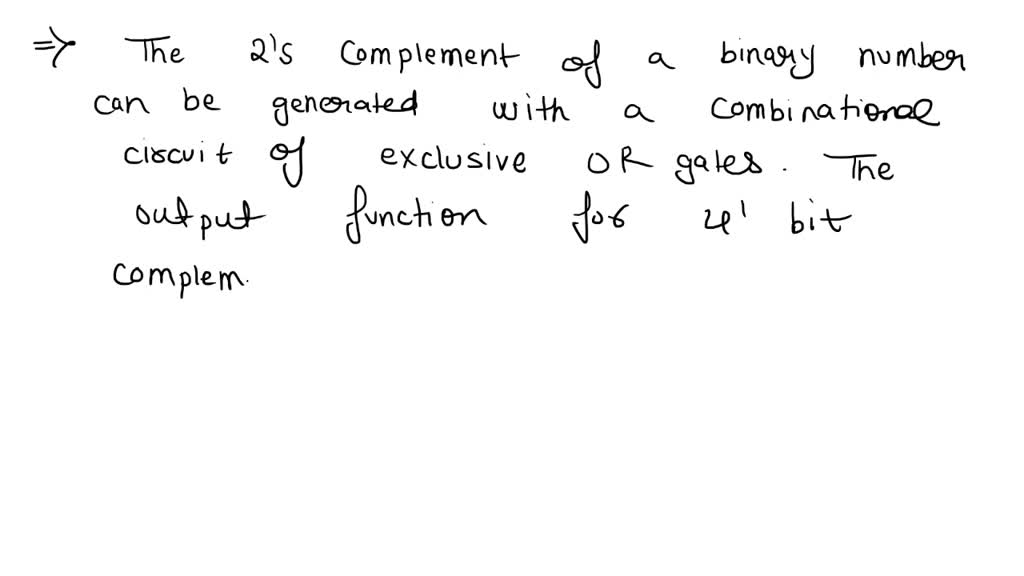 ⇒ The 2's Complement of a binary number
can be generated with a Combinational
circuit of exclusive OR gates. The
output function for 4' bit
Complem.